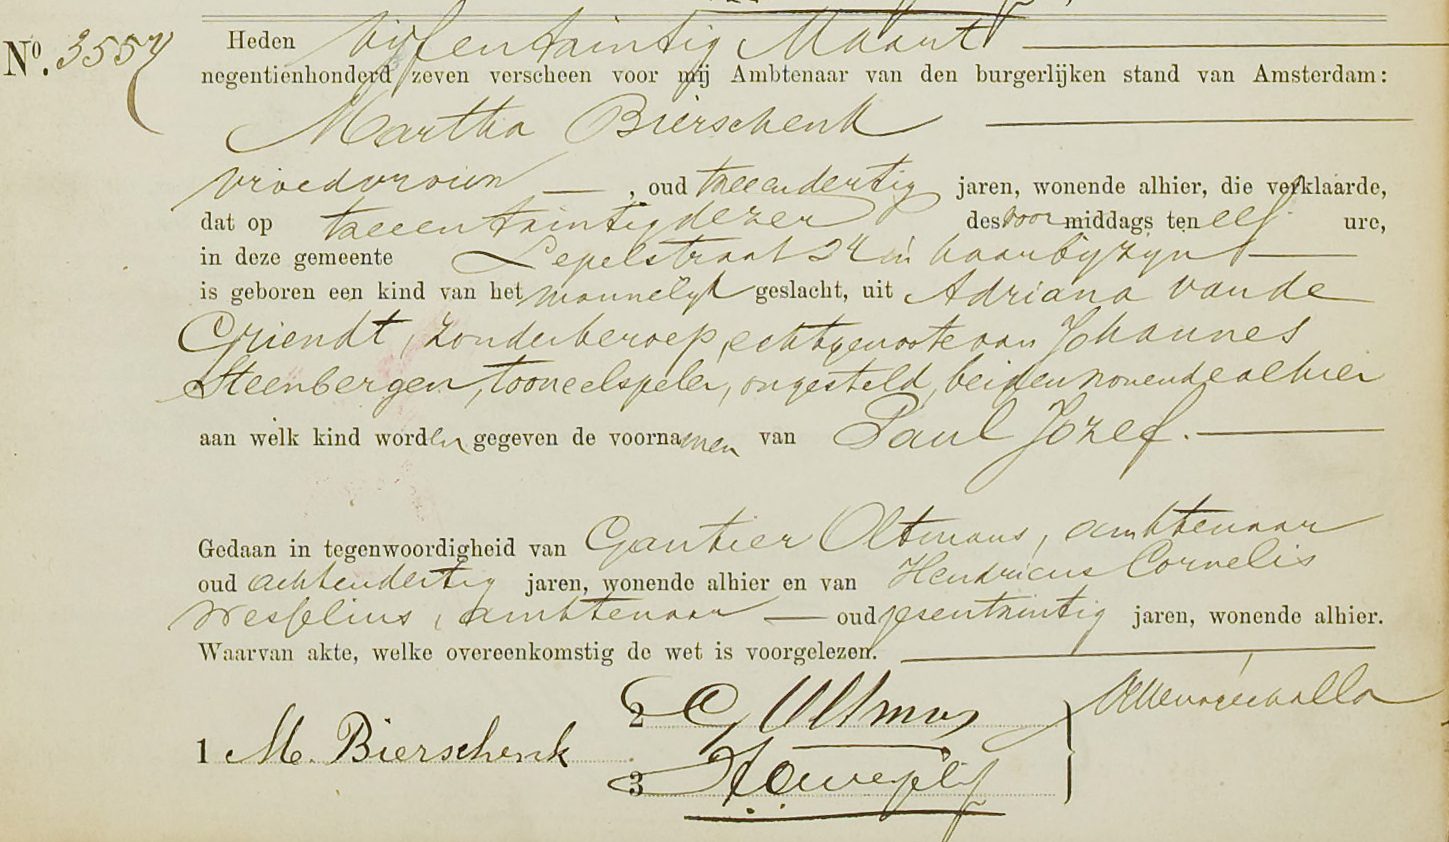 No. 3557 Heden vijfentwintig Maart
negentienhonderd zeven verscheen voor mij Ambtenaar van den burgerlijken stand van Amsterdam:
Martha Bierschenk
vroedvrouw, oud tweeendertig jaren, wonende alhier, die verklaarde,
dat op tweeentwintig dezer des voormiddags ten elf ure,
in deze gemeente Lepelstraat 24 in haar bijzijn
is geboren een kind van het mannelijk geslacht, uit Adriana van de
Griendt, zonder beroep, echtgenoote van Johannes
Steenbergen, tooneelspeler, ongesteld, beiden wonende alhier
aan welk kind worden gegeven de voornamen van Paul Jozef.
Gedaan in tegenwoordigheid van Gautier Oltmans, ambtenaar
oud achtendertig jaren, wonende alhier en van Hendricus Cornelis
Wesselius, ambtenaar oud zesentwintig jaren, wonende alhier.
Waarvan akte, welke overeenkomstig de wet is voorgelezen.
2 G Oltmans
1 M. Bierschenk
3